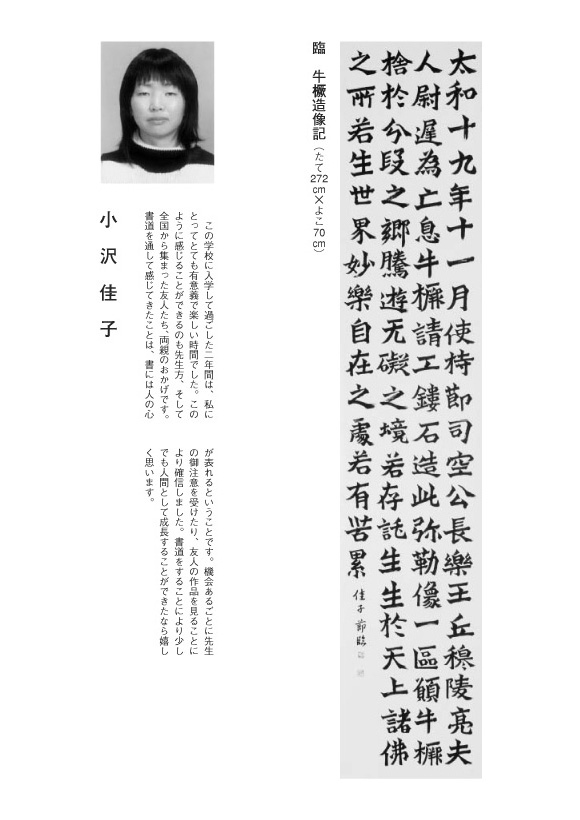 太和十九年十一月使持節司空公長樂王丘穆陵亮夫
人尉遲為亡息牛橛請工鏤石造此弥勒像一區願牛橛
捨於分段之鄉騰遊无礙之境若存託生生於天上諸佛
之所若生世界妙樂自在之處若有苦累
佳子節臨
臨　牛橛造像記（たて272cm×よこ70cm）
　この学校に入学して過ごした二年間は、私に
とってとても有意義で楽しい時間でした。この
ように感じることができるのも先生方、そして
全国から集まった友人たち、両親のおかげです。
書道を通して感じてきたことは、書には人の心
が表れるということです。機会あるごとに先生
の御注意を受けたり、友人の作品を見ることに
より確信しました。書道をすることにより少し
でも人間として成長することができたなら嬉し
く思います。
小沢佳子